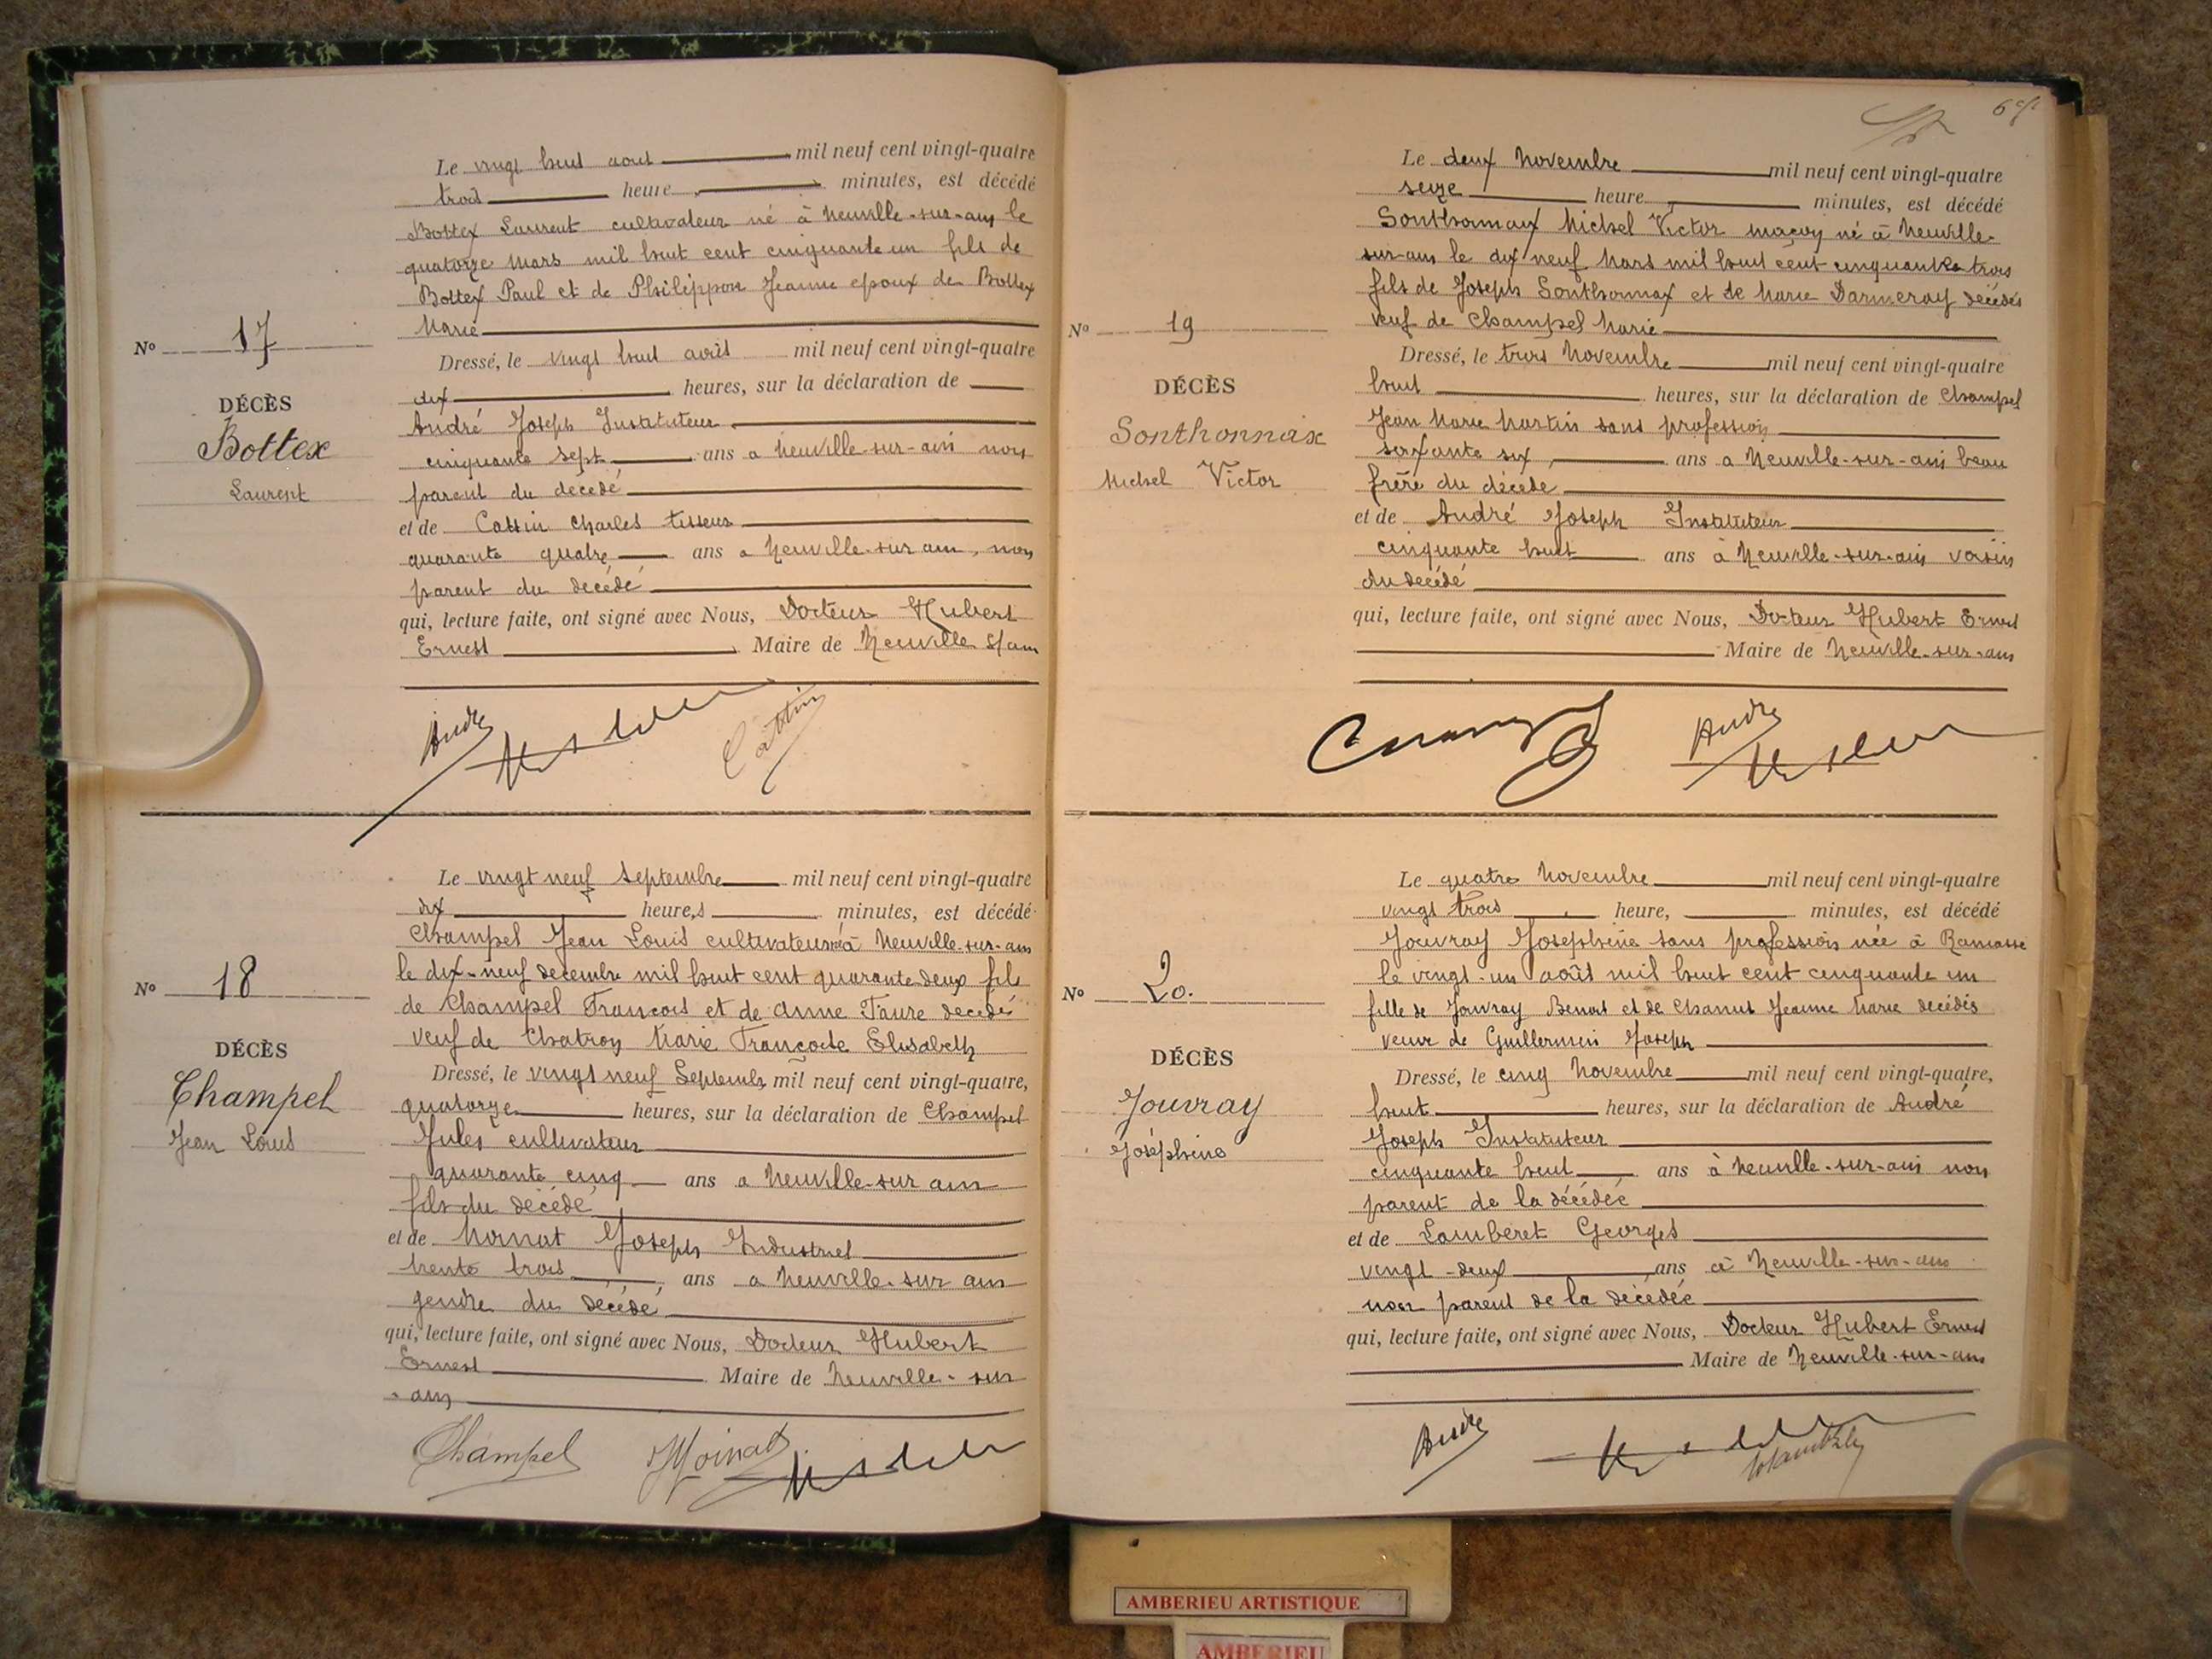 Le vingt huit aout mil neuf cent vingt-quatre
trois heure minutes, est décédé
Bottex Laurent cultivateur né à Neuville-sur-ain le
quatorze Mars mil huit cent cinquante un fils de
Bottex Paul et de Philippon Jeanne epoux de Bottex
Marie
No 17
Dressé, le vingt huit août mil neuf cent vingt-quatre
dix heures, sur la déclaration de
DÉCÈS
Bottex
Laurent
André Joseph Instituteur
cinquante sept ans a Neuville-sur-ain non
parent du décédé
et de Cattin Charles tisseur
quarante quatre ans a Neuville-sur ain, non
parent du décédé
qui, lecture faite, ont signé avec Nous, Docteur Hubert
Ernest Maire de Neuville s/ain
André Cattin
Le vingt neuf Septembre mil neuf cent vingt-quatre
dix heure,s minutes, est décédé
Champel Jean Louis cultivateur né à Neuville-sur-ain
le dix-neuf decembre mil huit cent quarante deux fils
de Champel Francois et de Anne Faure decedés
veuf de Chatron Marie Francoise Elisabeth
No 18
DÉCÈS
Champel
Jean Louis
Dressé, le vingt neuf Septembre mil neuf cent vingt-quatre,
quatorze heures, sur la déclaration de Champel
Jules cultivateur
quarante cinq ans a Neuville-sur ain
fils du décédé
et de Moinat Joseph Industriel
trente trois ans a Neuville-sur ain
gendre du décédé
qui, lecture faite, ont signé avec Nous, Docteur Hubert
Ernest Maire de Neuville-sur
-ain
Champel Moinat
Le deux Novembre mil neuf cent vingt-quatre
seize heure minutes, est décédé
Sonthonnax Michel Victor maçon né à Neuville-
sur-ain le dix neuf Mars mil huit cent cinquante trois
fils de Joseph Sonthonnax et de Marie Darmeray décédés
veuf de Champel Marie
No 19
DÉCÈS
Sonthonnax
Michel Victor
Dressé, le trois Novembre mil neuf cent vingt-quatre
huit heures, sur la déclaration de Champel
Jean Marie Martin sans profession
soixante six ans a Neuville-sur-ain beau
frère du décédé
et de André Joseph Instituteur
cinquante huit ans à Neuville-sur-ain voisin
du décédé
qui, lecture faite, ont signé avec Nous, Docteur Hubert Ernest
Maire de Neuville-sur-ain
André
Le quatre Novembre mil neuf cent vingt-quatre
vingt trois heure, minutes, est décédé
Jouvray Josephine sans profession née à Ramasse
le vingt-un août mil huit cent cinquante un
fille de Jouvray Benoit et de Chanut Jeanne Marie decédés
veuve de Guillermin Joseph
No 20.
DÉCÈS
Jouvray
Joséphine
Dressé, le cinq Novembre mil neuf cent vingt-quatre,
huit heures, sur la déclaration de André
Joseph Instituteur
cinquante huit ans à Neuville-sur-ain non
parent de la décédée
et de Lamberet Georges
vingt-deux ans à Neuville-sur-ain
non parent de la décédée
qui, lecture faite, ont signé avec Nous, Docteur Hubert Ernest
Maire de Neuville-sur-ain
André
AMBERIEU ARTISTIQUE
AMBERIEU